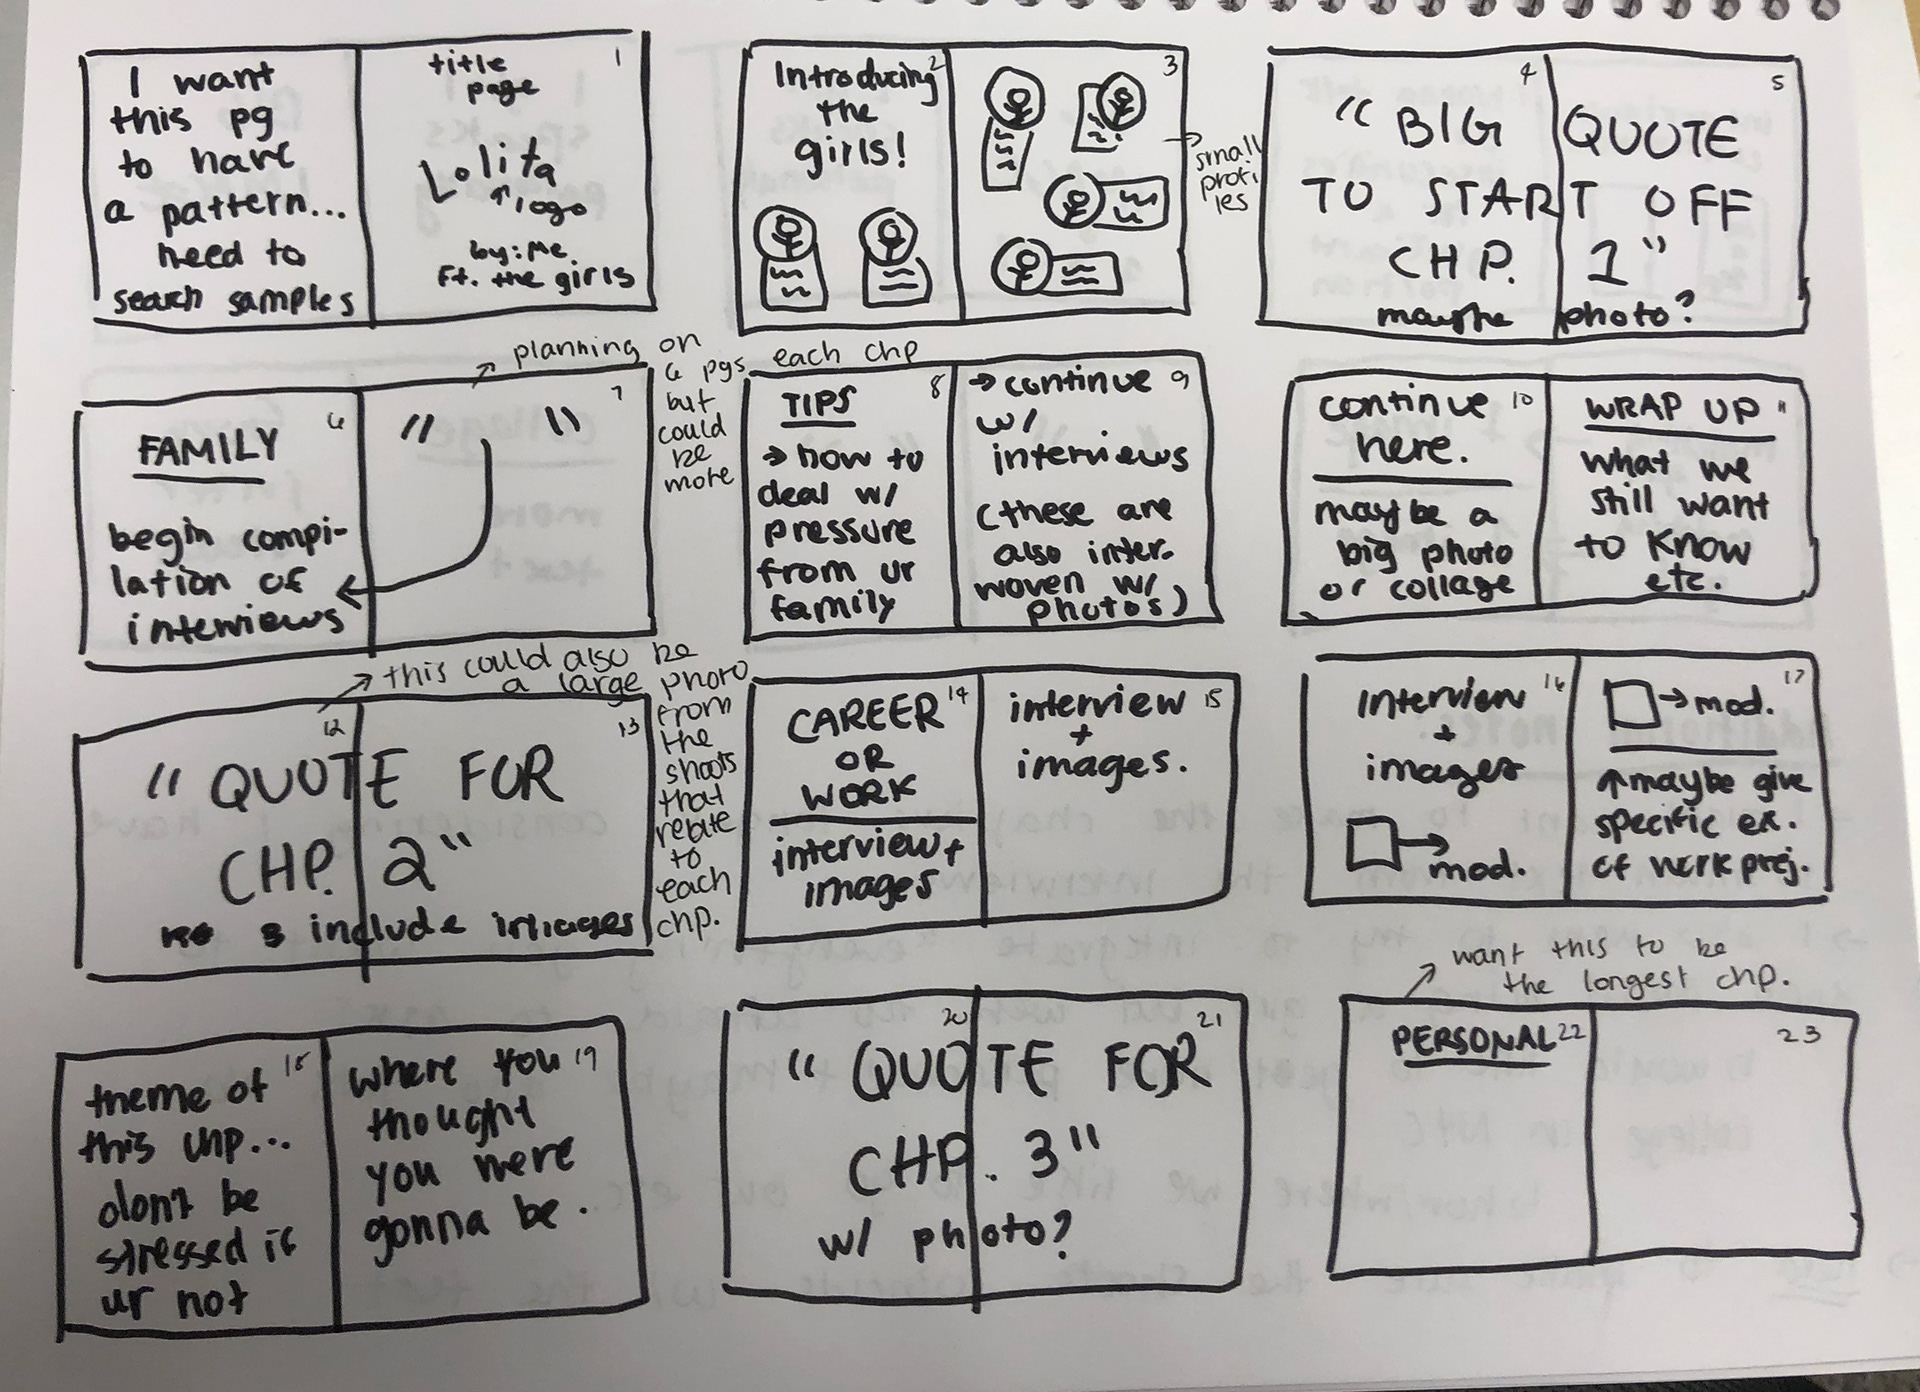 I want
this pg
to have
a pattern...
need to
search samples
1
title
page
Lolita
logo
by: Me
Ft. the girls
2
Introducing
the
girls!
3
small
profi
les
4
5
"BIG QUOTE
TO START OFF
CHP. 1"
maybe photo?
6
FAMILY
begin compi-
lation of
interviews
7
" "
planning on
6 pgs each chp
but
could
be
more
8
TIPS
→ how to
deal w/
pressure
from ur
family
9
→ continue
w/
interviews
(these are
also inter-
woven w/
photos)
10
continue
here.
maybe a
big photo
or collage
11
WRAP UP
what we
still want
to know
etc.
this could also be
a large photo
from
the
shoots
that
relate
to
each
chp.
12
13
"QUOTE FOR
CHP. 2"
include images
14
CAREER
OR
WORK
interview +
images
15
interview
+
images.
16
Interview
+
images
→ mod.
17
→ mod.
↑ maybe give
specific ex.
of work proj.
18
theme of
this chp...
dont be
stressed if
ur not
19
where you
thought
you were
gonna be.
20
21
"QUOTE FOR
CHP. 3"
w/ photo?
want this to be
the longest chp.
22
PERSONAL
23